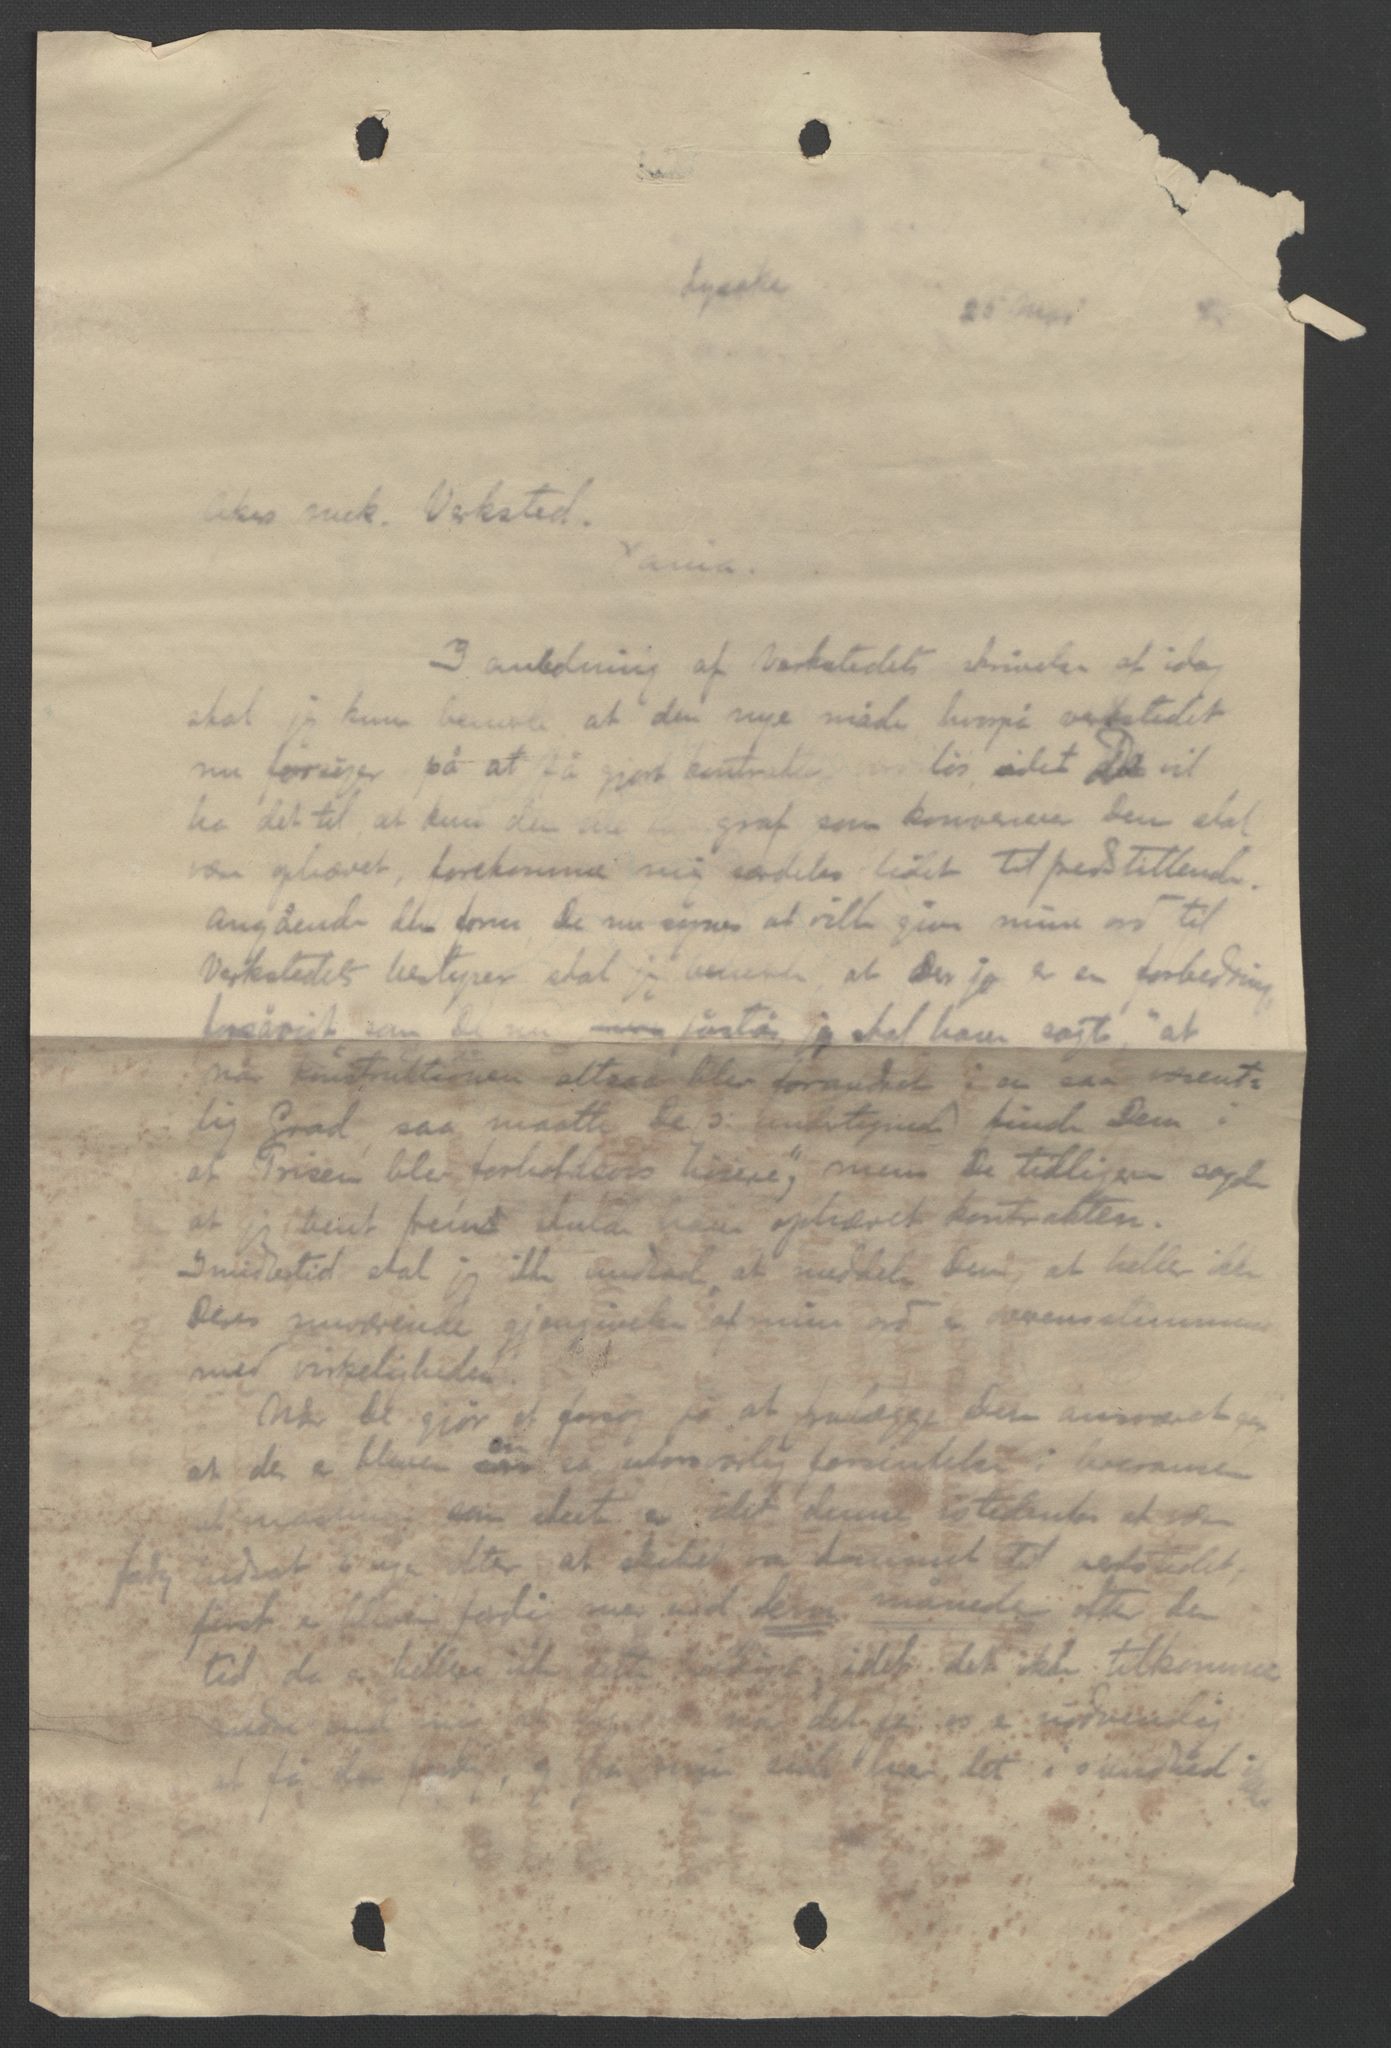 Lysaker
25 Mai 8
Akers mek. Verksted.
Xania.
I anledning af Verkstedets skrivelse af idag
skal jeg kun bemerke at den nye måde hvorpå verkstedet
nu forsøger på at få gjort kontrakten løs, idet De vil
ha det til, at kun den graf som konvenerer Dem skal
være ophævet, forekommer mig særdeles lidet tilfredsstillende.
Angående den form De nu synes at ville give mine ord til
Verkstedets bestyrer skal jeg bemerke, at der jo er en forbedring,
forsåvidt som De nu påstår, jeg skal have sagt, "at
når konstruktionen altsaa blev forandret i en saa væsent-
lig Grad, saa maatte De undertegnede finde Dem i
at Prisen blev forholdsvis høiere", mens De tidligere sagde
at jeg bent frem skulde have ophævet kontrakten.
Imidlertid skal jeg ikke undlade, at meddele Dem, at heller ikke
Deres nuværende gjengivelse af mine ord er overensstemmende
med virkeligheden.
Når De gjør et forsøg på at fralægge Dem ansvaret for
at der er bleven en så uforsvarlig forsinkelse i leverancen
af som sket er, idet denne istedenfor at være
færdig indsat 6 uger efter, at skibet var kommet til verkstedet,
først er bleven færdig mer end måneder efter den
tid, da er heller ikke dette heldigt, idet det ikke tilkommer
andre end mig at når det for os er nødvendig
at få den færdig, og fra min side har det i sandhed ikke